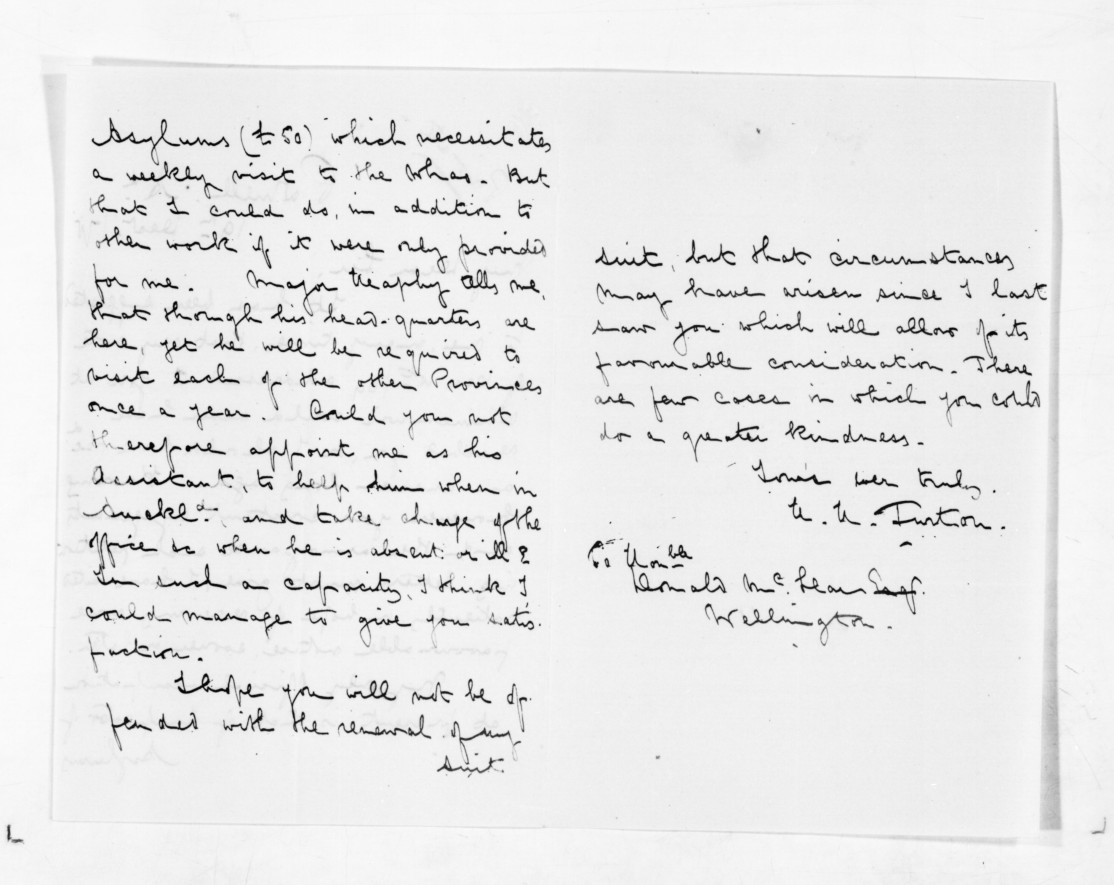 Asylums (£50) which necessitates
a weekly visit to the Whau. But
that I could do, in addition to
other work if it were only provided
for me. Major Heaphy tells me,
that through his head-quarters are
here, yet he will be required to
visit each of the other Provinces
once a year. Could you not
therefore appoint me as his
Assistant, to help him when in
Auckld., and take charge of the
office &c when he is absent or ill?
In such a capacity, I think I
could manage to give you satis-
faction.
I hope you will not be of-
fended with the renewal of my
suit
suit, but that circumstances
may have arisen since I last
saw you which will allow of its
favourable consideration. There
are few cases in which you could
do a greater kindness.
Yours ver truly.
H. H. Turton.
To Honble
Donald McLean Esqr.
Wellington.